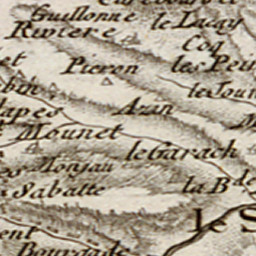 Guillonne le Lauzy
Riviere
Coq
Pieron les Pein
les Jour
Azan
lapes
Mounet le Garach
Tonjau
Sabatte la Bde
le S
ent Bourgade